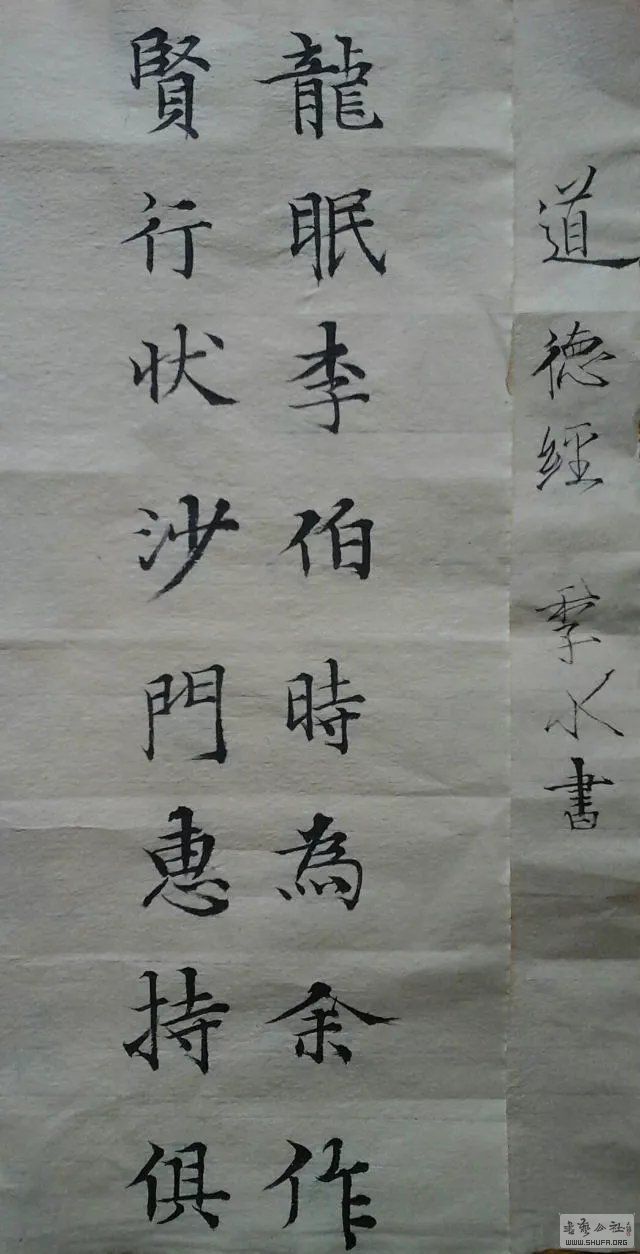 道德經 季水書
龍眠李伯時為余作
賢行状沙門惠持俱
書藝公社
WWW.SHUFA.ORG